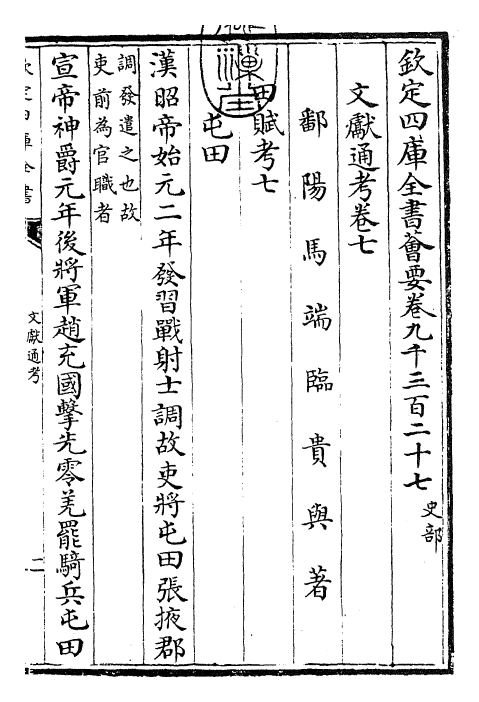 欽定四庫全書薈要卷九千三百二十七
史部
文獻通考卷七
鄱陽馬端臨貴與著
田賦考七
屯田
漢昭帝始元二年發習戰射士調故吏將屯田張掖郡
調發遣之也故
吏前為官職者
宣帝神爵元年後將軍趙充國擊先零羌罷騎兵屯田
欽定四庫全書
文獻通考